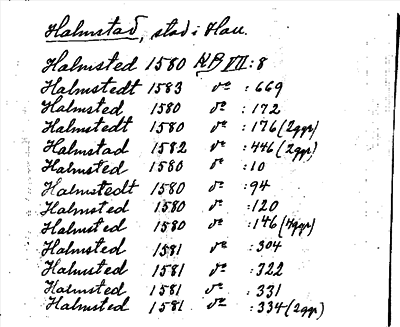 Halmstad, stad i Hall.
Halmsted 1580 NB VII : 8
Halmstedt 1583 d:o : 669
Halmsted 1580 d:o : 172
Halmstedt 1580 d:o : 176 (2ggr)
Halmstad 1582 d:o : 446 (2ggr)
Halmsted 1580 d:o : 10
Halmstedt 1580 d:o : 94
Halmsted 1580 d:o : 120
Halmsted 1580 d:o : 146 (4ggr)
Halmsted 1581 d:o : 304
Halmsted 1581 d:o : 322
Halmsted 1581 d:o : 331
Halmsted 1581 d:o : 334 (2ggr)